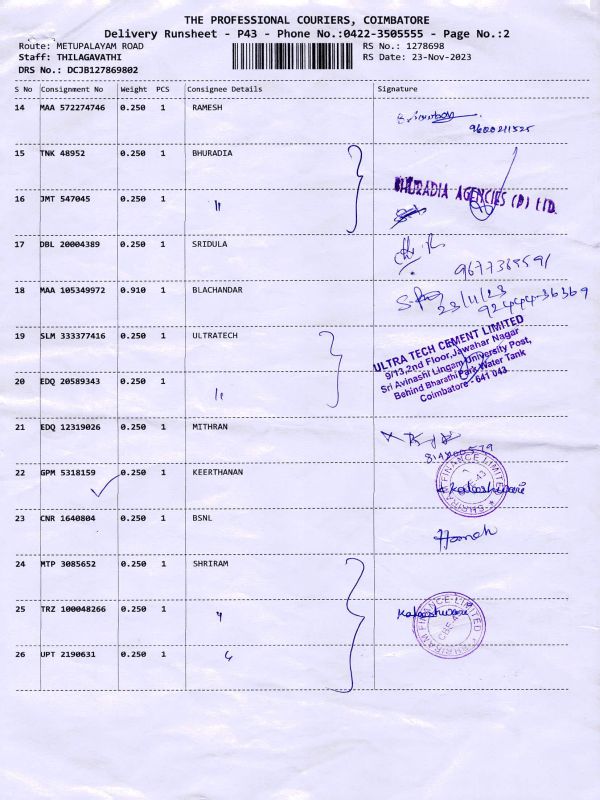 THE PROFESSIONAL COURIERS, COIMBATORE
Delivery Runsheet - P43 - Phone No.:0422-3505555 - Page No.:2
Route: METUPALAYAM ROAD RS No.: 1278698
Staff: THILAGAVATHI RS Date: 23-Nov-2023
DRS No.: DCJB127869802
S No Consignment No Weight PCS Consignee Details Signature
14 MAA 572274746 0.250 1 RAMESH
9600211525
15 TNK 48952 0.250 1 BHURADIA
BHURADIA AGENCIES (P) LTD.
16 JMT 547045 0.250 1 "
17 DBL 20004389 0.250 1 SRIDULA
18 MAA 105349972 0.910 1 BLACHANDAR
23/11/23
92444-36369
19 SLM 333377416 0.250 1 ULTRATECH
ULTRA TECH CEMENT LIMITED
9/13,2nd Floor,Jawahar Nagar
Sri Avinashi Lingam University Post,
Behind Bharathi Park Water Tank
Coimbatore - 641 043
20 EDQ 20589343 0.250 1 "
21 EDQ 12319026 0.250 1 MITHRAN
22 GPM 5318159 0.250 1 KEERTHANAN
23 CNR 1640804 0.250 1 BSNL
24 MTP 3085652 0.250 1 SHRIRAM
25 TRZ 100048266 0.250 1 "
SHRIRAM FINANCE LIMITED
26 UPT 2190631 0.250 1 "